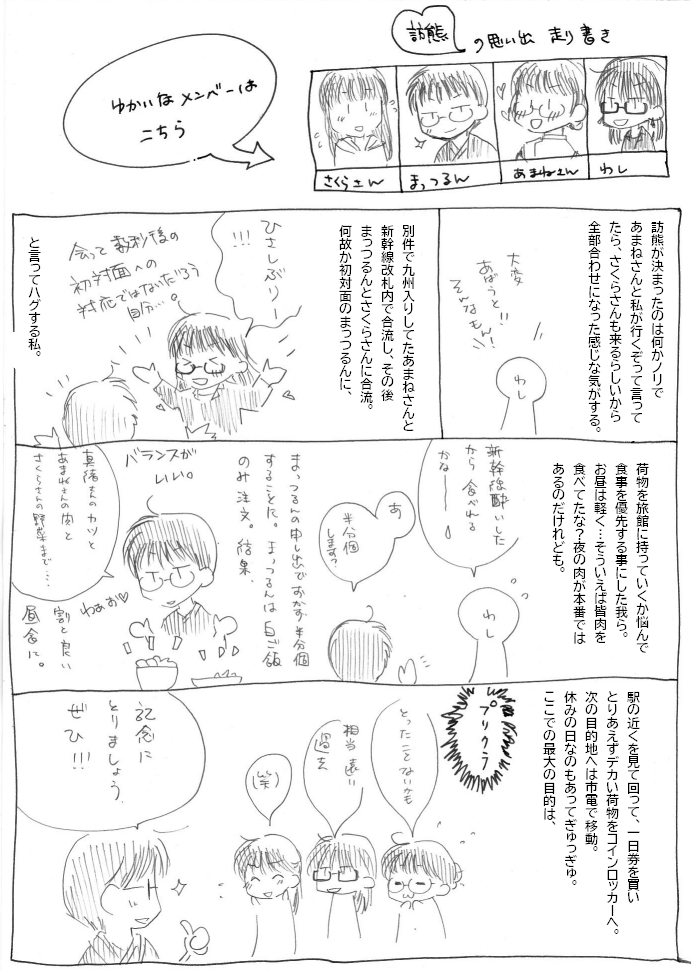 訪熊の思い出 走り書き
ゆかいなメンバーは
こちら
さくらさん
まっつるん
あまねさん
わし
訪熊が決まったのは何かノリで
あまねさんと私が行くぞって言って
たら、さくらさんも来るらしいから
全部合わせになった感じな気がする。
大変
あばうと!!
そんなもん!
わし
別件で九州入りしてたあまねさんと
新幹線改札内で合流し、その後
まっつるんとさくらさんに合流。
何故か初対面のまっつるんに、
ひさしぶりー
!!!
会って数秒後の
初対面への
対応ではないだろう
自分…。
と言ってハグする私。
荷物を旅館に持っていくか悩んで
食事を優先する事にした我ら。
お昼は軽く…そういえば皆肉を
食べてたな?夜の肉が本番では
あるのだけれども。
新幹線酔いした
から食べれる
かな〜
わし
あ
半分個
します?
まっつるんの申し出でおかず半分個
することに。まっつるんは白ご飯
のみ注文。結果、
バランスが
いい。
わぁぉ♥
真緒さのカツと
あまねさの肉と
さくらさんの野菜まで…
割と良い
昼食に。
駅の近くを見て回って、一日券を買い
とりあえずデカい荷物をコインロッカーへ。
次の目的地へは市電で移動。
休みの日なのもあってぎゅっぎゅ。
ここでの最大の目的は、
プリクラ
とったことないかも
相当遠い
過去
(笑)
記念に
とりましょう、
ぜひ!!!